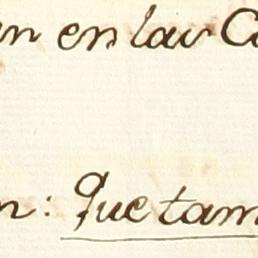 an en las Ca
n: Que tam